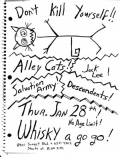 Don't Kill Yourself!!
Alley Cats!!
Salvation Army
Descendents!
Thur. Jan 28th
No Age Limit!
Whisky a go go!